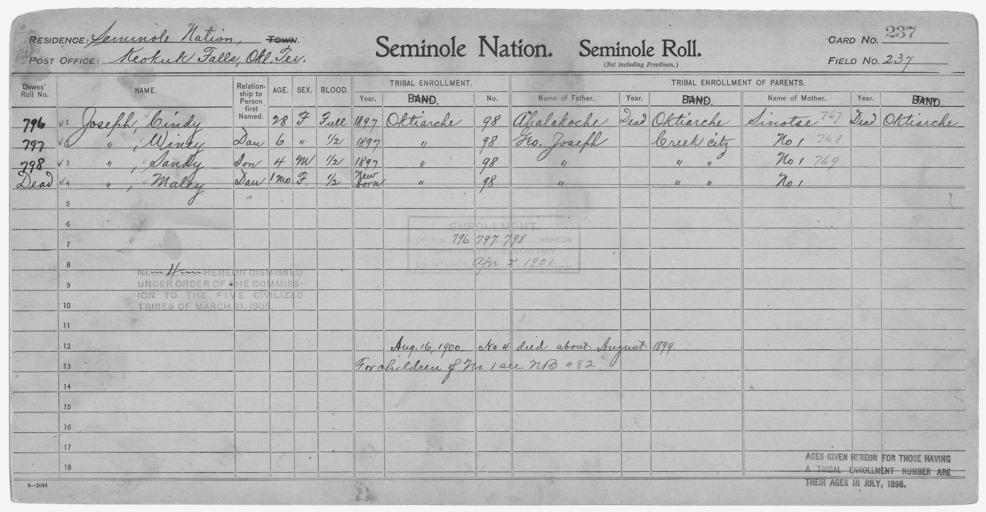 RESIDENCE: Seminole Nation, TOWN.
POST OFFICE: Keokuk Falls, Okl. Ter.
Seminole Nation. Seminole Roll.
(Not including Freedmen.)
CARD NO. 237
FIELD NO. 237
Dawes' Roll No. NAME. Relationship to Person first Named. AGE. SEX. BLOOD. TRIBAL ENROLLMENT. TRIBAL ENROLLMENT OF PARENTS.
Year. BAND. No. Name of Father. Year. BAND. Name of Mother. Year. BAND.
796 1 Joseph, Cindy 28 F Full 1897 Oktiarche 98 Ahalakoche Dead Oktiarche Sinotse 767 Dead Oktiarche
797 2 " , Winey Dau 6 " 1/2 1897 " 98 Geo. Joseph Creek city No 1 768
798 3 " , Sandy Son 4 M 1/2 1897 " 98 " " " No 1 769
Dead 4 " , Maley Dau 1 mo F 1/2 New born " 98 " " " No 1
5
6
ENROLLMENT
7
OF NOS. 796 797 798 HEREON
8
OF INTERIOR Apr. 2, 1901.
No. 4 HEREON DISMISSED
9
UNDER ORDER OF THE COMMISSION TO THE FIVE CIVILIZED
10
TRIBES OF MARCH 31, 1905.
11
12 Aug. 16, 1900. No 4 died about August 1899
13 For children of No 1 see NB # 82
14
15
16
17
18
AGES GIVEN HEREON FOR THOSE HAVING
A TRIBAL ENROLLMENT NUMBER ARE
THEIR AGES IN JULY, 1898.
6—1044